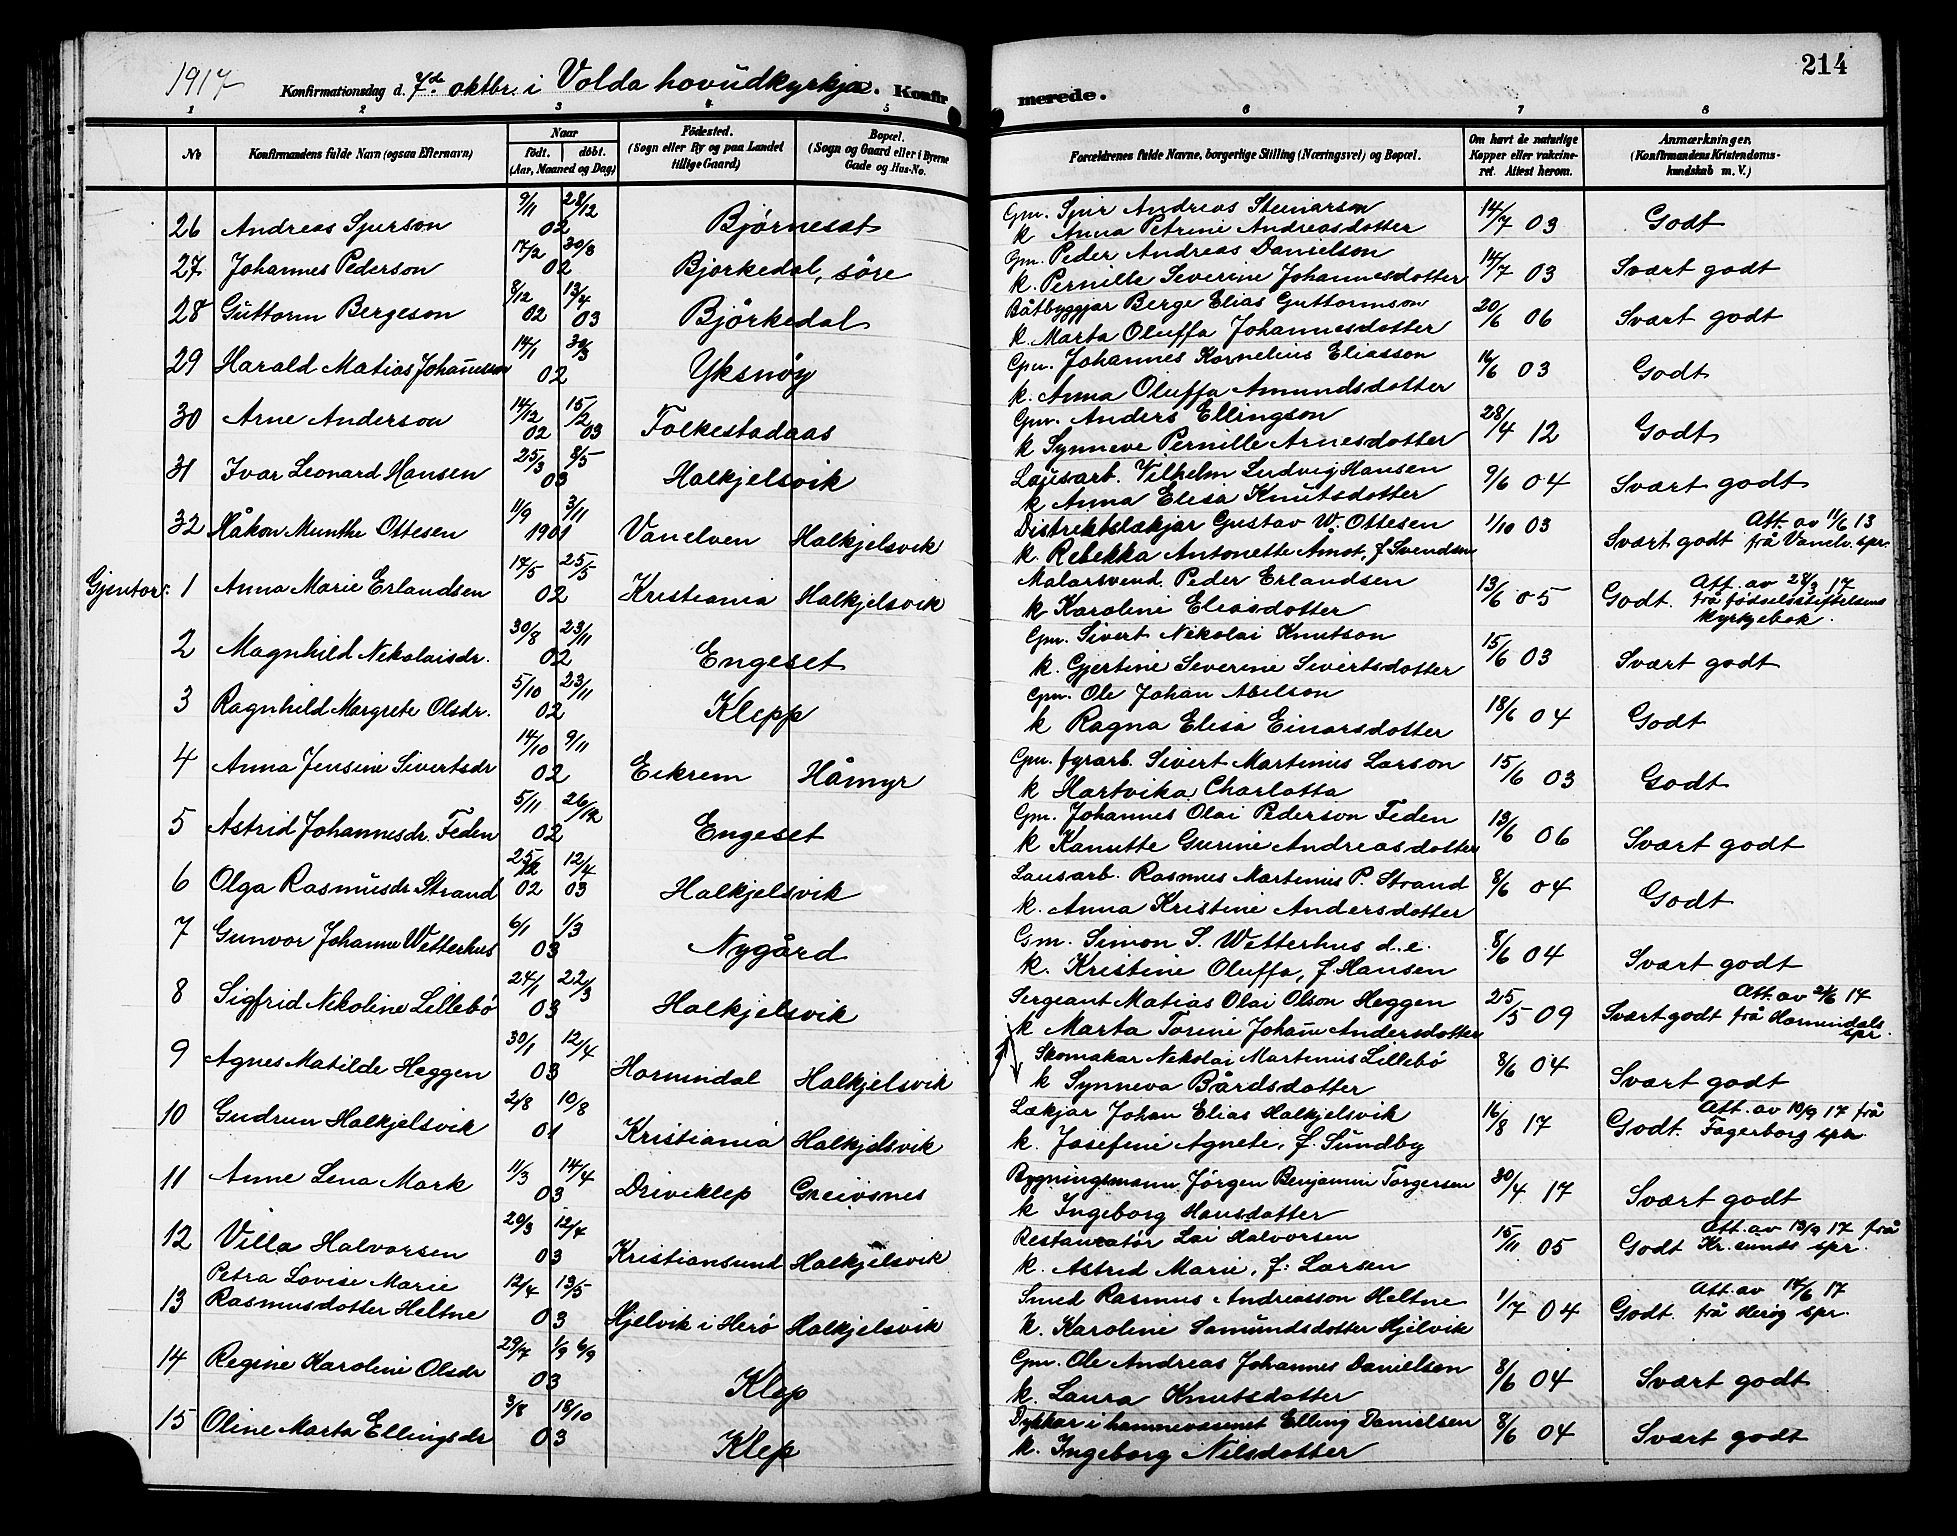 1917 Konfirmationsdag d. 7de oktbr. i Volda hovudkyrkja. Konfirmerede. 214
1 2 3 4 5 6 7 8
No Konfirmandens fulde Navn (ogsaa Efternavn) Naar født. døbt. (Aar, Maaned og Dag) Fødested. (Sogn eller By og paa Landet tillige Gaard) Bopæl. (Sogn og Gaard eller i Byerne Gade og Hus-No. Forældrenes fulde Navne, borgerlige Stilling (Næringsvei) og Bopæl. Om havt de naturlige Kopper eller vakcineret. Attest herom. Anmærkninger. (Konfirmandens Kristendomskundskab m. V.)
26 Andreas Spirson 9/11 28/12 02 Bjørneset Gm. Spir Andreas Steinarson k Anna Petrine Andreasdotter 14/7 03 Godt
27 Johannes Pederson 17/2 30/3 02 Bjorkedal, söre Gm. Peder Andreas Danielson k. Pernille Severine Johannesdotter 14/7 03 Svært godt
28 Guttorm Bergeson 8/12 02 13/4 03 Björkedal Båtbyggjar Berge Elias Guttormson k. Marta Oluffa Johannesdotter 20/6 06 Svært godt
29 Harald Matias Johañesson 14/1 30/3 02 Yksnöy Gm. Johannes Kornelius Eliasson k. Anna Oluffa Amundsdotter 16/6 03 Godt
30 Arne Anderson 14/12 02 15/2 03 Folkestadaas Gm. Anders Ellingson k Synneve Pernille Arnesdotter 28/4 12 Godt
31 Ivar Leonard Hansen 25/3 9/5 03 Halkjelsvik Lausarb. Vilhelm Ludvig Hansen k Anna Elisa Knutsdotter 9/6 04 Svært godt
32 Håkon Munthe Ottesen 11/9 3/11 1901 Vanelven Halkjelsvik Distriktslækjar Gustav W. Ottesen k. Rebekka Antonette Amot, f. Svendsen 1/10 03 Svært godt Att. av 11/6 13 frå Vanelv. spr.
Gjentor: 1 Anna Marie Erlandsen 14/5 25/5 02 Kristiania Halkjelsvik Malarsvend Peder Erlandsen k Karoline Eliasdotter 13/6 05 Godt. Att. av 28/9 17 frå fødselsstiftelsens kyrkjebok.
2 Magnhild Nikolaisdr. 30/8 23/11 02 Engeset Gm. Sivert Nikolai Knutson k. Gjertine Severine Sivertsdotter 15/6 03 Svært godt
3 Ragnhild Margrete Olsdr. 5/10 23/11 02 Klepp Gm. Ole Johan Abelson k Ragna Elisa Einarsdotter 18/6 04 Godt
4 Anna Jensine Sivertsdr 14/10 9/11 02 Eikrem Håmyr Gm. fyrarb. Sivert Martinus Larson k Hartvika Charlotta 15/6 03 Godt
5 Astrid Johannesdr. Feden 5/11 26/12 02 Engeset Gm. Johannes Olai Pederson Feden k Kanutte Gurine Andreasdotter 13/6 06 Svært godt
6 Olga Rasmusdr Strand 25/12 02 12/4 03 Halkjelsvik Lausarb. Rasmus Martinus P. Strand k. Anna Kristine Andersdotter 8/6 04 Godt
7 Gunvor Johanne Wetterhus 6/1 1/3 03 Nygård Gm. Simon S. Wetterhus d.e. k. Kristine Oluffa, f. Hansen 8/6 04 Svært godt
8 Sigfrid Nikoline Lillebö 24/1 22/3 03 Halkjelsvik Sergeant Matias Olai Olson Heggen k Marta Torine Johañe Andersdotter 25/5 09 Svært godt Att. av 24/6 17 frå Hornindals spr.
9 Agnes Matilde Heggen 30/1 12/4 03 Hornindal Halkjelsvik Skomakar Nikolai Martinus Lillebö k Synneva Bårdsdotter 8/6 04 Svært godt
10 Gudrun Halkjelsvik 2/8 10/8 01 Kristiania Halkjelsvik Lækjar Johan Elias Halkjelsvik k. Josefine Agnete, f. Sundby 16/8 17 Godt. Att. av 10/9 17 frå Fagerborg spr.
11 Anne Lena Mork 11/3 14/4 03 Driveklep Greivsnes Bygningsmann Jörgen Benjamin Torgersen k Ingeborg Hansdotter 30/4 17 Svært godt
12 Villa Halvorsen 20/3 12/4 03 Kristiansund Halkjelsvik Restauratør Lai Halvorsen k. Astrid Marie, f. Larsen 15/11 05 Godt Att. av 13/9 17 frå Kr. sunds spr.
13 Petra Lovise Marie Rasmusdotter Heltne 12/4 13/5 03 Hjelvik i Herö Halkjelsvik Smed Rasmus Andreasson Heltne k. Karoline Samundsdotter Hjelvik 1/7 04 Godt. Att. av 14/6 17 frå Heröy spr.
14 Regine Karoline Olsdr 29/7 1/9 6/9 03 Klep Gm. Ole Andreas Johannes Danielsen k. Laura Knutsdotter 8/6 04 Svært godt
15 Oline Marta Ellingsdr 3/8 18/10 03 Klep Dykkar i hamnevæsenet Elling Danielsen k. Ingeborg Nilsdotter 8/6 04 Svært godt